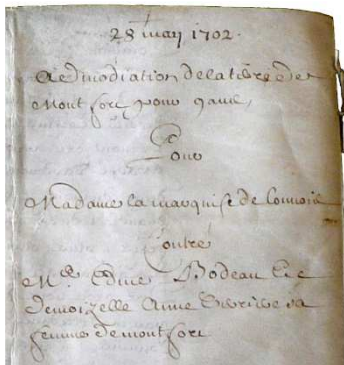 28 may 1702.
Admodiation de la terre de
Montfort pour 9 ans,
Pour
Madame la marquise de Louvois
Contre
Me Edme Bodeau Et
demoizelle Anne sa
femme de montfort